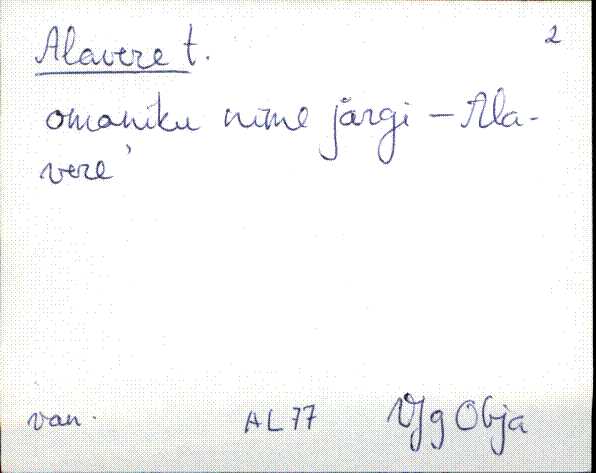 2
Alavere t.
omaniku nime järgi – Ala-
vere'
van. AL 77 VJg Obja